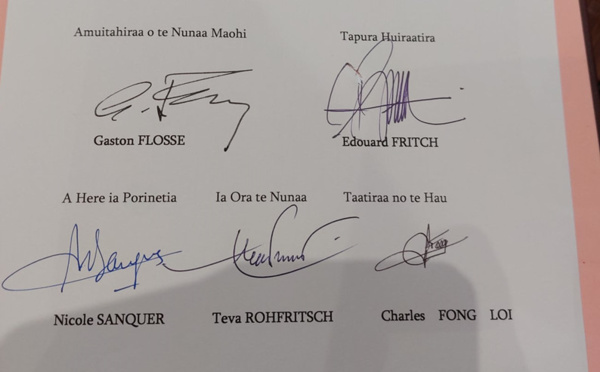 Amuitahiraa o te Nunaa Maohi Tapura Huiraatira
Gaston FLOSSE Edouard FRITCH
A Here ia Porinetia Ia Ora te Nunaa Taatiraa no te Hau
Nicole SANQUER Teva ROHFRITSCH Charles FONG LOI